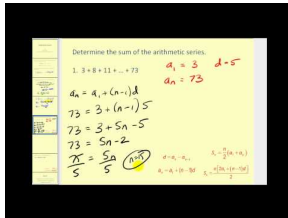 Determine the sum of the arithmetic series.
1. 3 + 8 + 11 + ... + 73
a₁ = 3 d = 5
aₙ = 73
aₙ = a₁ + (n-1)d
73 = 3 + (n-1)5
73 = 3 + 5n - 5
73 = 5n - 2
75/5 = 5n/5
n=15
d = aₙ - aₙ₋₁
aₙ = a₁ + (n-1)d
Sₙ = n/2 (a₁ + aₙ)
Sₙ = n[2a₁ + (n-1)d]/2